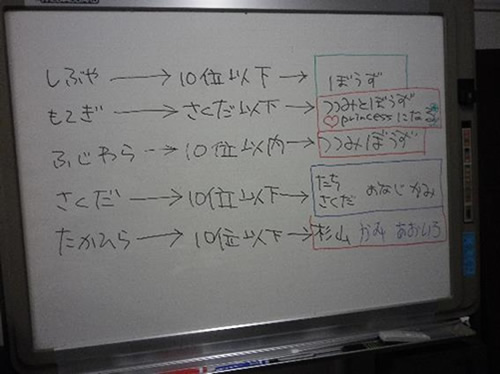 しぶや → 10位以下 → ぼうず
もてぎ → さくだ以下 → つつみとぼうず
♡princessになる
ふじわら → 10位以内 → つつみぼうず
さくだ → 10位以下 → たち
さくだ おなじかみ
たかひら → 10位以下 → 杉山 かみ あおいろ